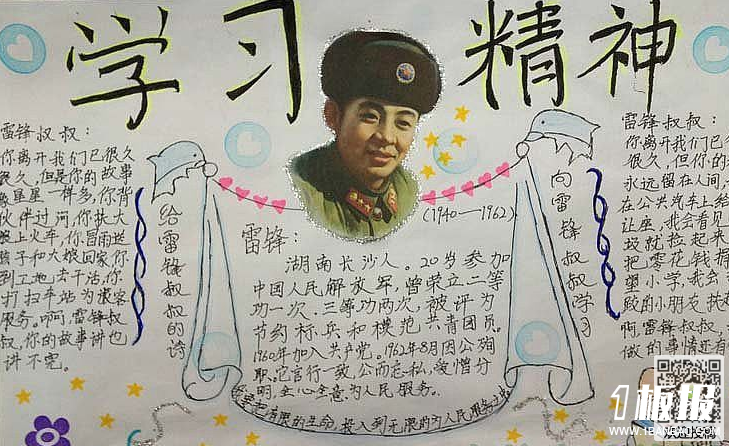 学习 精神
雷锋叔叔：
你离开我们已很久
很久，但是你的故事
星星一样多，你背
伙伴过河，你扶大
上火车，你冒雨送
孩子和大娘回家，你
到工地去干活，你
打扫车站为旅客
服务。啊，雷锋叔
叔，你的故事讲也
讲不完。
给雷锋叔叔的诗
(1940—1962)
雷锋：
湖南长沙人。20岁参加
中国人民解放军，曾荣立二等
功一次、三等功两次，被评为
节约标兵和模范共青团员。
1960年加入共产党。1962年8月因公殉
职。它言行一致，公而忘私，爱憎分
明，全心全意为人民服务。
有限的生命，投入到无限的为人民服务之
向雷锋叔叔学习
雷锋叔叔：
你离开我们已
很久，但你的
永远留在人间，
在公共汽车上给
让座，我会看见
圾就捡起来
把零花钱捐
望小学，我会
的小朋友扶起
啊，雷锋叔叔，
做的事情还有
1板报
WWW.1BANBAO.COM
欢迎投稿